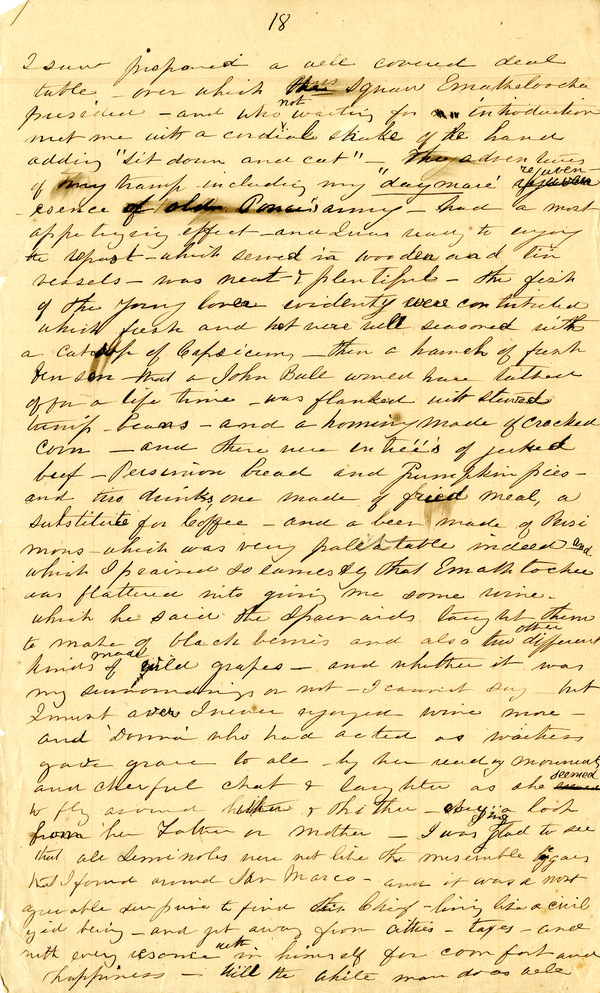 18
I saw prepared a well covered deal
table – over which this squaw Emathloochee
presided – and who not waiting for an introduction
met me with a cordial shake of the hand
adding "sit down and eat" – The adventures
of my tramp including my "daymare" rejuven
-esence of old Ponce's army – had a most
appetizing effect – and I was ready to enjoy
the repast – which served in wooden and tin
vessels – was neat & plentiful – the fish
of the young lover evidently were contributed
which fresh and hot were well seasoned with
a catsup of Capsicum, – then a haunch of fresh
venison – that a John Bull would have talked
of for a life time – was flanked with stewed
turnip – beans – and a hominy made of cracked
corn – and there were entreés of jerked
beef – Persimon bread and Pumpkin pies –
and two drinks, one made of fried meal, a
substitute for Coffee – and a beer made of Persi
mons – which was very palatable indeed and
which I praised so earnestly that Emathlochee
was flattered into giving me some wine –
which he said the Spaniards taught them
to make of black berries and also two other different
kinds made of wild grapes – and whether it was
my surroundings or not – I cannot say – but
I must aver I never enjoyed wine more –
and 'Donna' who had acted as waitress
gave grace to all – by her ready movements
and cheerful chat & laughter as she seemed
to fly around hither & thither – obeying a look
from her Father or mother – I was glad to see
that all Seminoles were not like the miserable
that I found around San Marco – and it was a most
agreeable surprise to find the Chief – living like a civil
ized being – and yet away from cities – taxes – and
with every resource with in himself for comfort and
happiness – Will the white man do as well